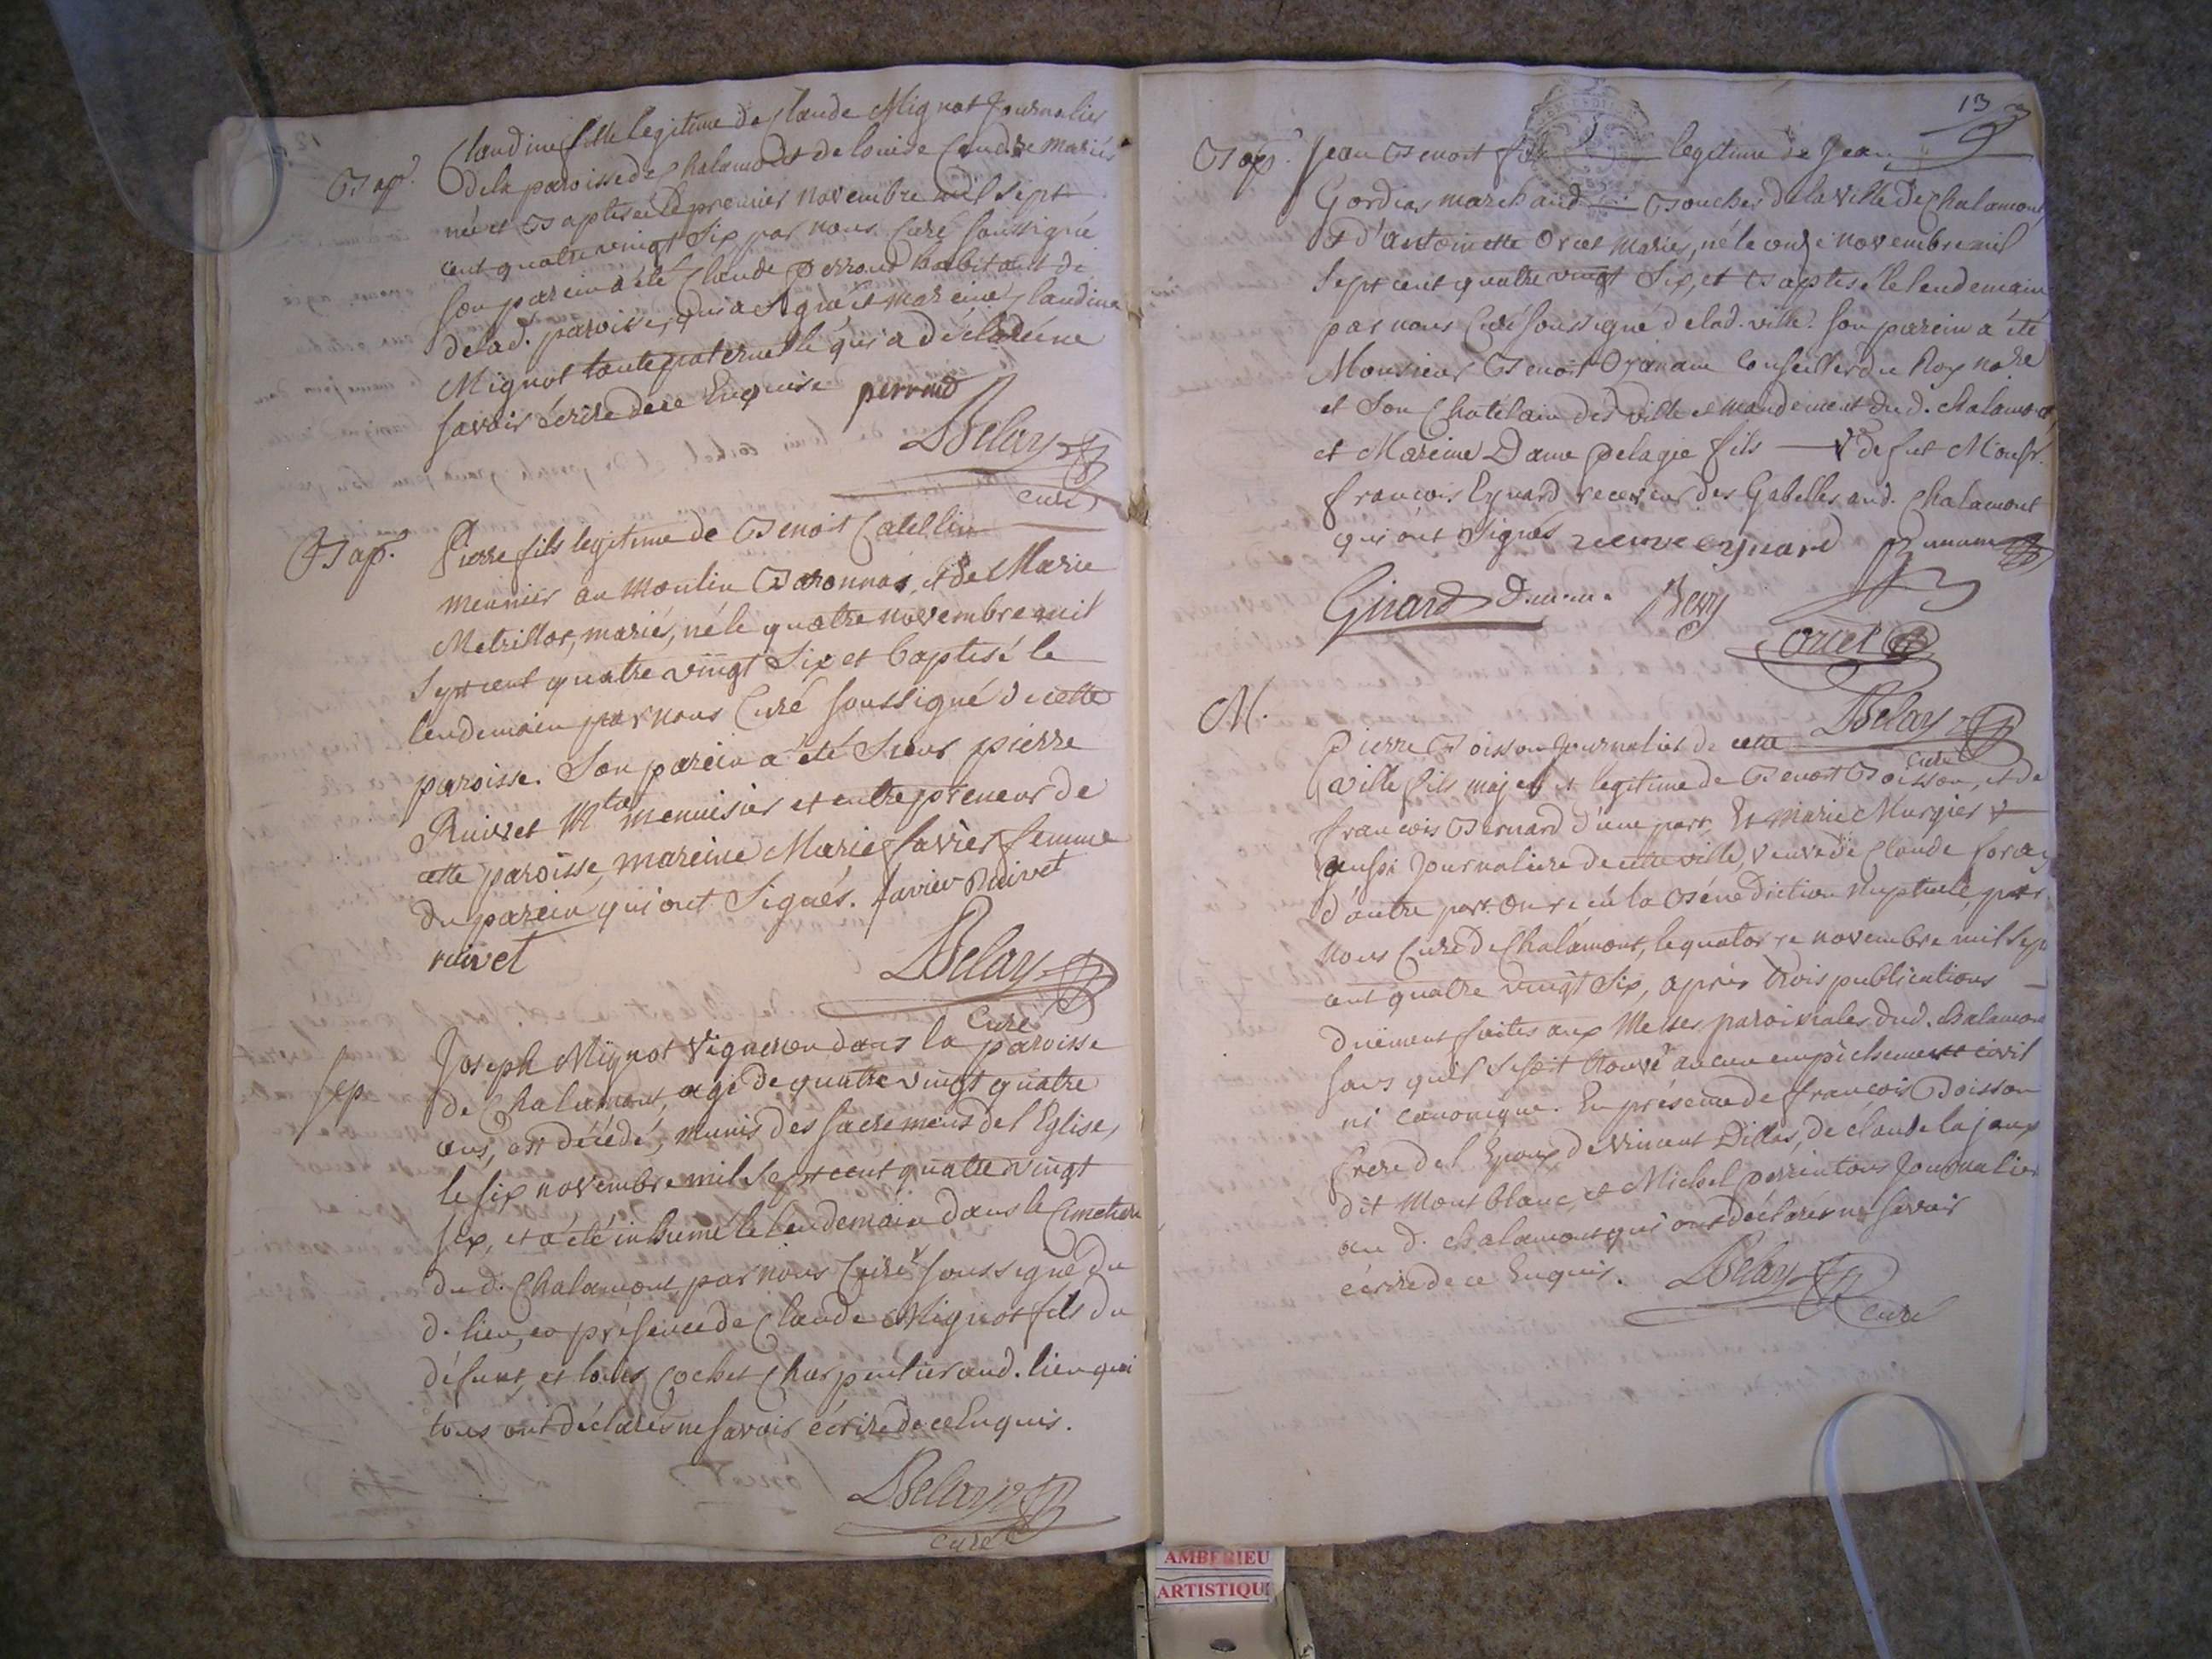 Bap. Claudine fille legitime de Claude Mignot Journalier
de la paroisse de Chalamont et de louise mariés
née et Baptisée le premier novembre mil sept
cent quatre vingt Six par nous Curé soussigné
son parein a été Claude perroud habitant de
de lad. paroisse, qui a signé et mareine Claudine
Mignot tante paternelle qui a déclaré ne
savoir écrire de ce Enquise perroud
Belay
curé
Bap. Pierre fils legitime de Benoit Catellin
meunier au moulin Baronnas, et de Marie
Metrillot, mariés, né le quatre novembre mil
Sept cent quatre vingt Six et baptisé le
lendemain par nous Curé soussigné de cette
paroisse. Son parein a été Sieur pierre
Ruivet Mtre menuisier et entrepreneur de
cette paroisse, mareine Marie favier femme
du parein qui ont Signés. favier Ruivet
ruivet
Belay
Curé
Sep. Joseph Mignot Vigneron dans la paroisse
de Chalamont, agé de quatre vingt quatre
ans, est décédé, munis des sacremens de l'Eglise,
le six novembre mil Sept cent quatre vingt
six, et a été inhumé le lendemain dans le Cimetiere
du d. Chalamont par nous Curé soussigné du
d. lieu, en présence de Claude Mignot fils du
défunt, et louis Cochet Charpentier aud. lieu qui
tous ont déclarés ne savoir écrire de ce Enquis.
Belay
curé
13
Bap. Jean Benoit fils legitime de Jean
Gordias marchand Boucher de la ville de Chalamont
et d'antoinette Oriet mariés, né le onze novembre mil
sept cent quatre vingt Six, et Baptisé le lendemain
par nous Curé soussigné de lad. ville. son parein a été
Monsieur Benoit Ozanam Conseiller du Roy
et Son Chatelain des ville et mandement du d. chalamont
et Mareine Dame pelagie fils Ve de fut Monsr.
françois Eynard receveur des Gabelles aud. Chalamont
qui ont Signés veuve eynard
Girard
oriet
Belay
curé
M. Pierre Boisson Journalier de cette
ville fils majeur et legitime de Benoit Boisson, et de
françois Bernard d'une part, Et marie Murgier
aussi Journaliere de cette ville, veuve de Claude
d'autre part. On reçu la Bénédiction Nuptiale, par
nous Curé de Chalamont, le quatorze novembre mil sept
cent quatre vingt Six, après trois publications
duëment faites aux Messes paroissiales dud. chalamont
sans qu'il se soit trouvé aucun empêchement civil
ni canonique. En présence de françois Boisson
frere de l'Epoux, de Vincent Dillas, de claude lajaux
dit mont blanc, et Michel perrin tous Journalier
au d. chalamont qui ont déclarés ne savoir
écrire de ce Enquis. Belay
curé
AMBERIEU
ARTISTIQUE